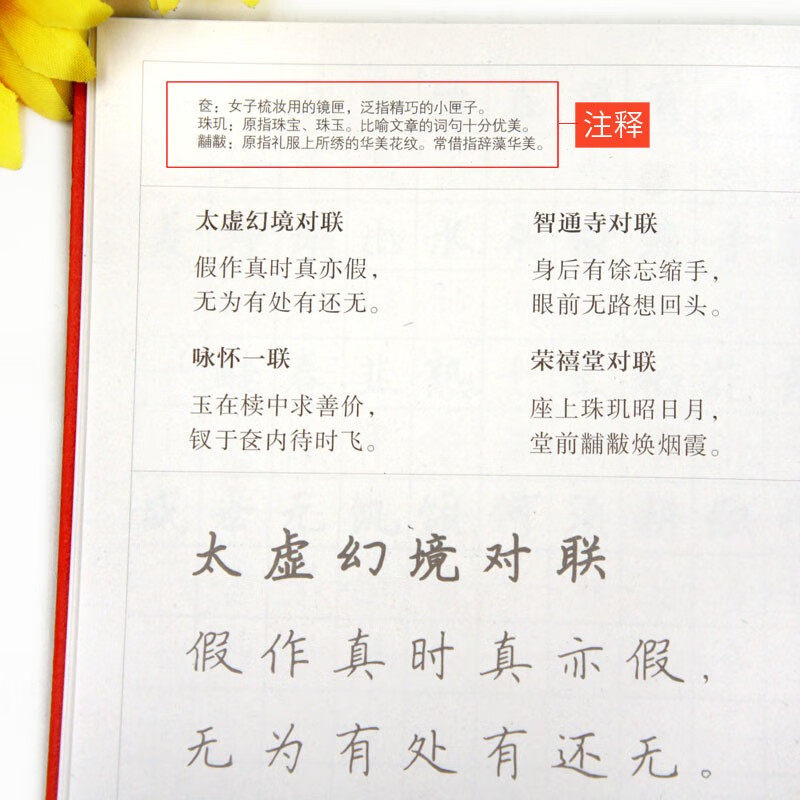 奁：女子梳妆用的镜匣，泛指精巧的小匣子。
珠玑：原指珠宝、珠玉。比喻文章的词句十分优美。
黼黻：原指礼服上所绣的华美花纹。常借指辞藻华美。
注释
太虚幻境对联
假作真时真亦假，
无为有处有还无。
智通寺对联
身后有馀忘缩手，
眼前无路想回头。
咏怀一联
玉在椟中求善价，
钗于奁内待时飞。
荣禧堂对联
座上珠玑昭日月，
堂前黼黻焕烟霞。
太虚幻境对联
假作真时真亦假，
无为有处有还无。